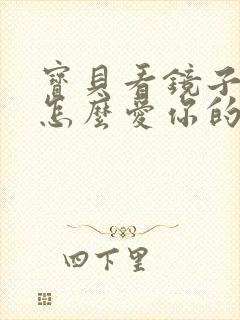 寶貝看鏡子
怎麼愛你的
四下里